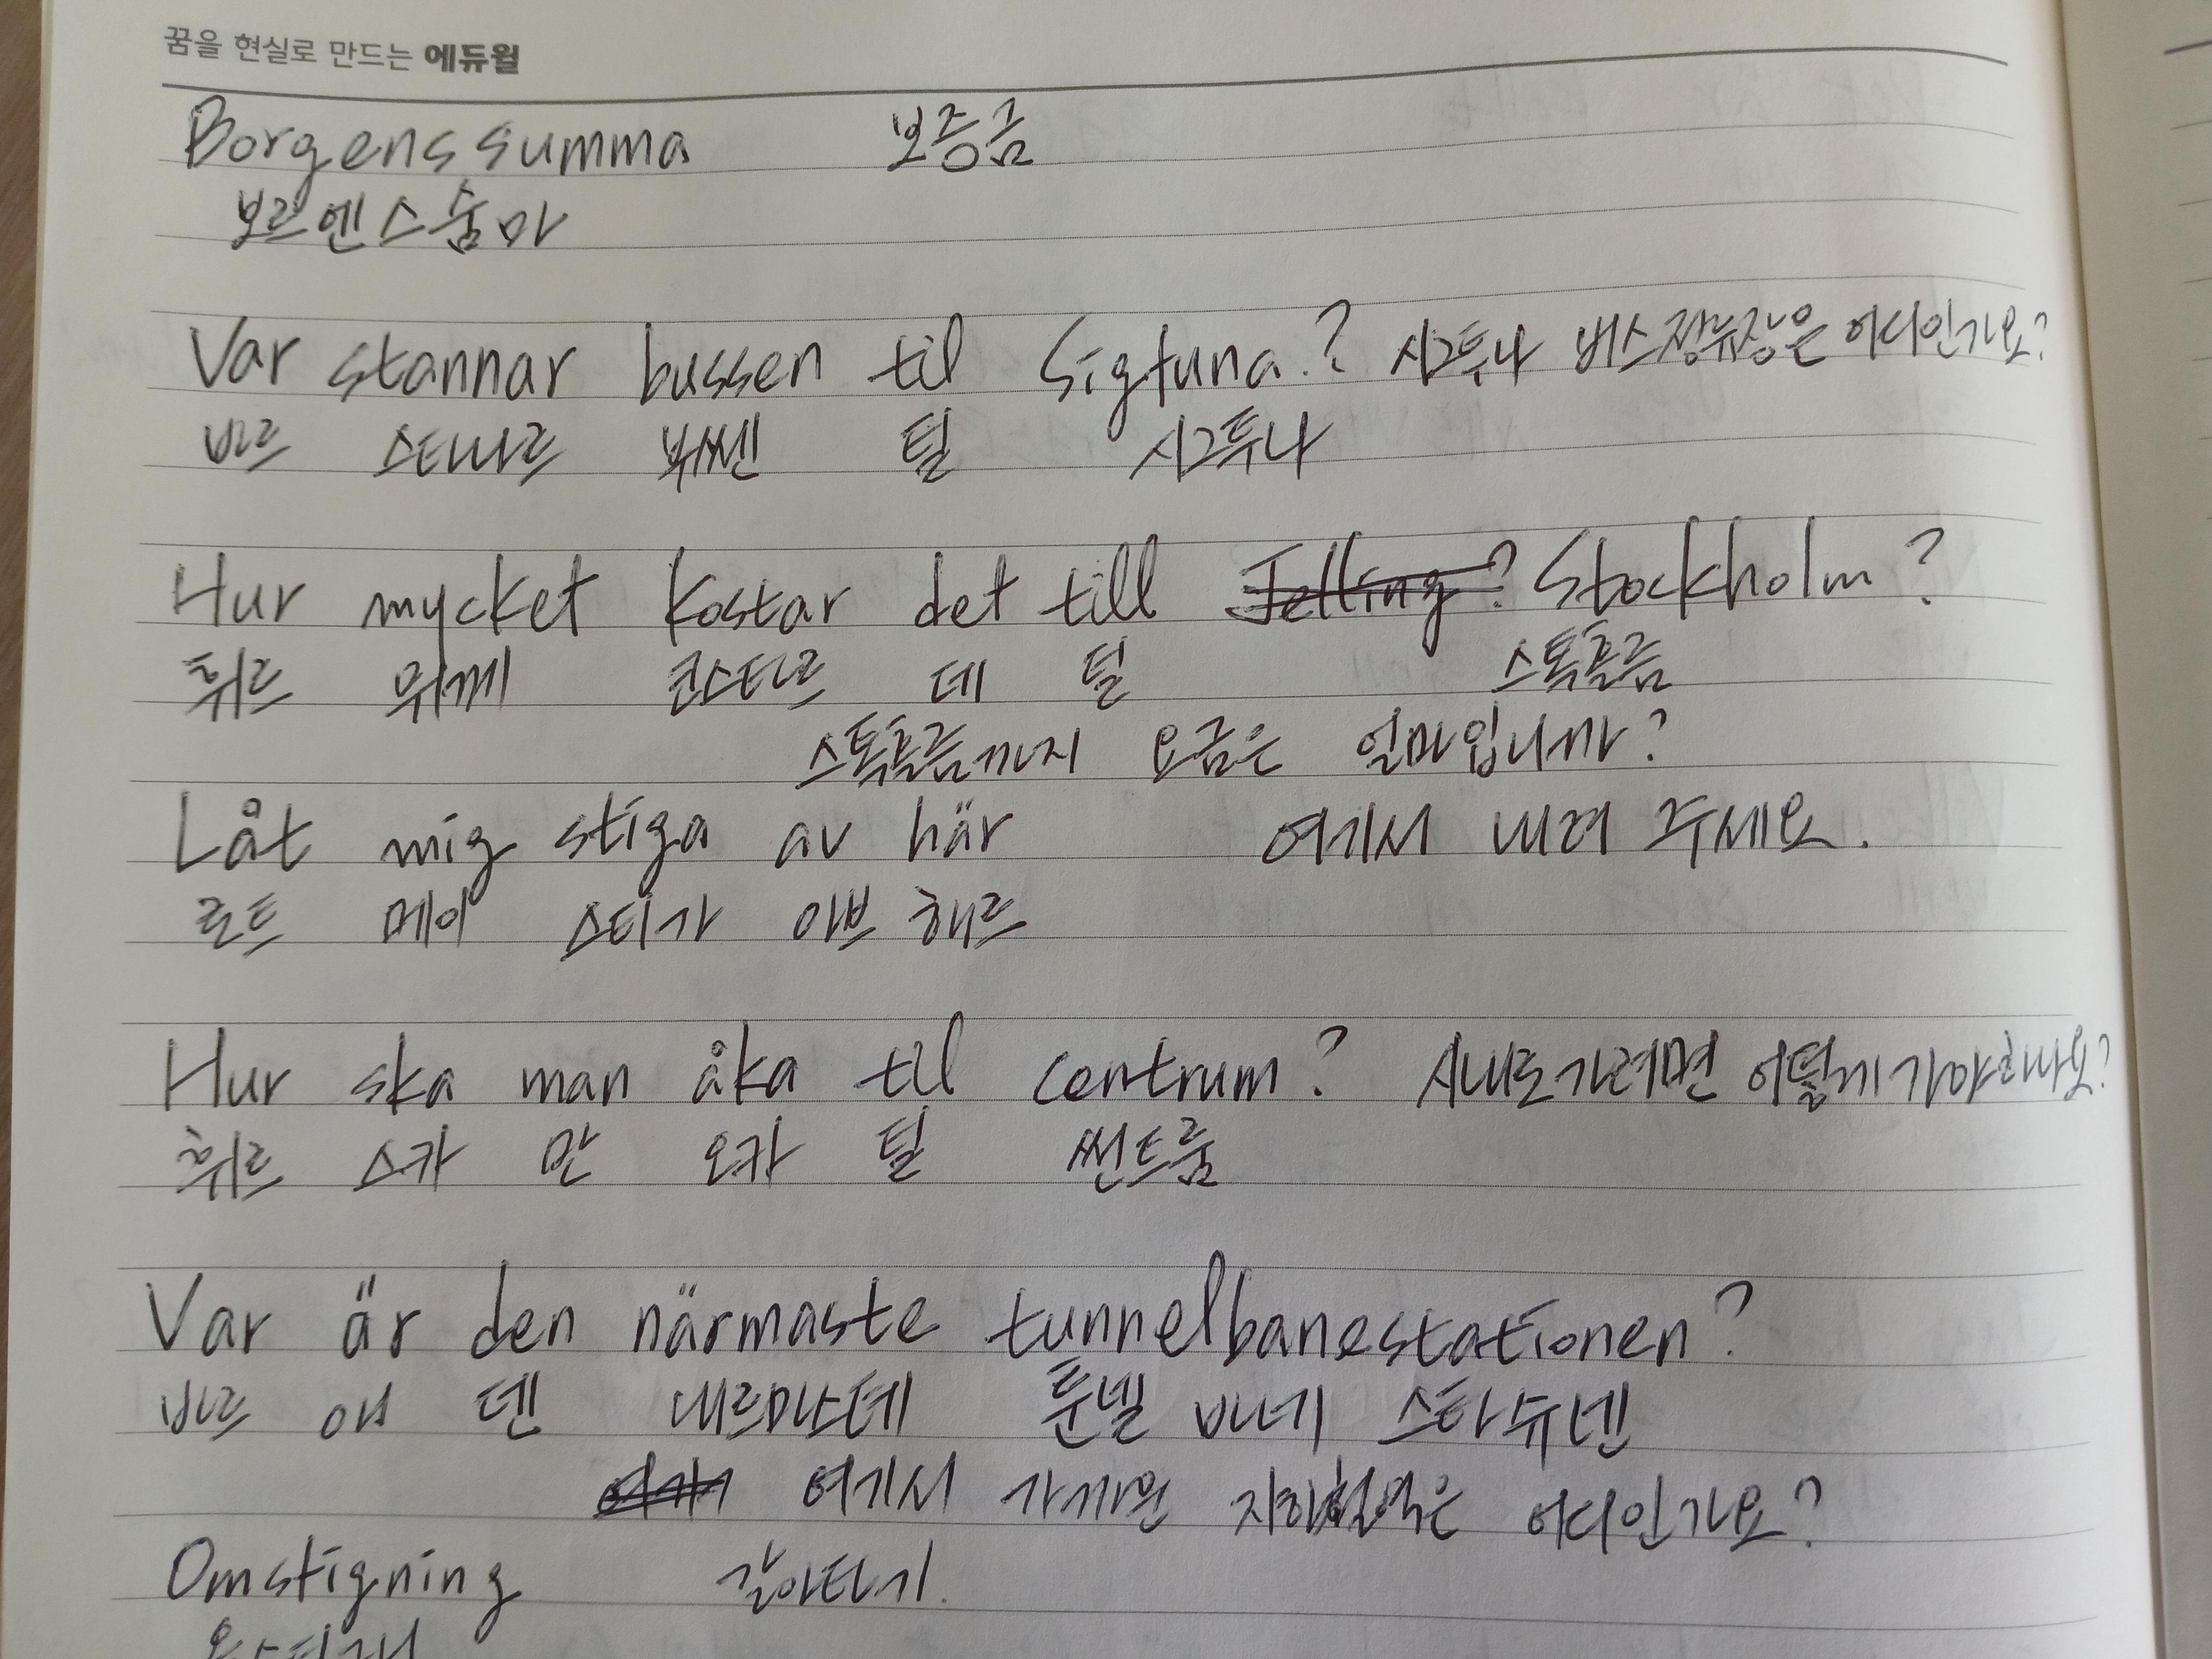 꿈을 현실로 만드는 에듀윌
Borgenssumma 보증금
보르엔스숨마
Var stannar bussen til Sigtuna? 시그투나 버스정류장은 어디인가요?
바르 스타나르 뷔쎈 틸 시그투나
Hur mycket kostar det till Jelling? Stockholm?
휘르 뮈께 코스타르 데 틸 스톡홀름
스톡홀름까지 요금은 얼마입니까?
Låt mig stiga av här 여기서 내려 주세요.
로트 메이 스티가 아브 해르
Hur ska man åka til centrum? 시내로가려면 어떻게가야하나요?
휘르 스카 만 오카 틸 쎈트룸
Var är den närmaste tunnelbanestationen?
바르 애 덴 내르마스테 툰넬 바네 스타슈넨
여기서 가까운 지하철역은 어디인가요?
Omstigning 갈아타기.